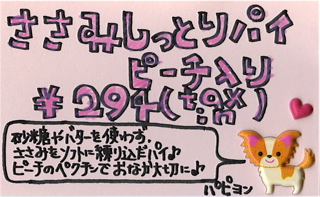 ささみしっとりパイ
ピーチ入り
¥294(税込)
砂糖やバターを使わず、
ささみをソフトに練り込だパイ♪
ピーチのペクチンでおなか大切に♪
パピヨン